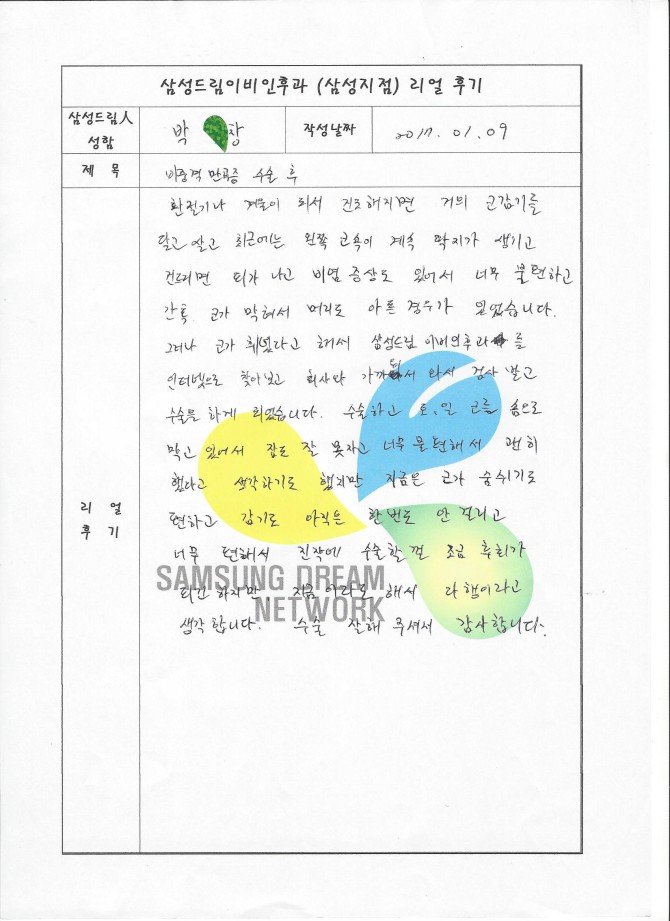 삼성드림이비인후과 (삼성지점) 리얼 후기
삼성드림人
성함
박 창
작성날짜
2017. 01. 09
제 목
비중격 만곡증 수술 후
환절기나 겨울이 되서 건조해지면 거의 코감기를
달고 살고 최근에는 왼쪽 코속이 계속 딱지가 생기고
건드리면 피가 나고 비염 증상도 있어서 너무 불편하고
간혹 코가 막혀서 머리도 아픈 경우가 있었습니다.
그러나 코가 휘었다고 해서 삼성드림 이비인후과를
인터넷으로 찾아보고 회사와 가까워서 와서 검사 받고
수술을 하게 되었습니다. 수술하고 토, 일 코를 솜으로
막고 있어서 잠도 잘 못자고 너무 불편해서 괜히
했다고 생각하기도 했지만 지금은 코가 숨쉬기도
편하고 감기도 아직은 한번도 안 걸리고
너무 편해서 진작에 수술할껄 조금 후회가
되긴 하지만, 지금이라도 해서 다행이라고
생각합니다. 수술 잘해 주셔서 감사합니다.
리 얼
후 기
SAMSUNG DREAM
NETWORK